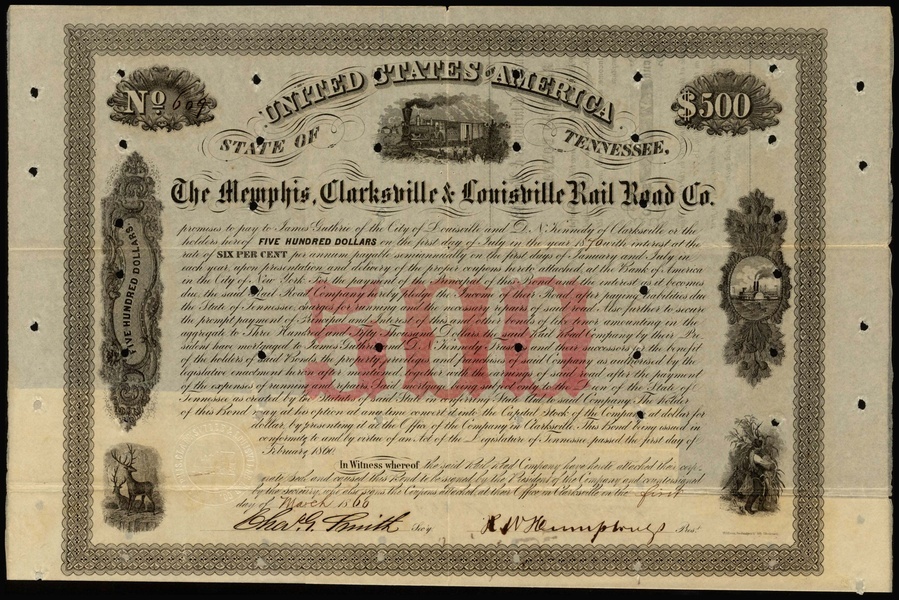 UNITED STATES OF AMERICA
No 609
$500
STATE OF TENNESSEE.
The Memphis, Clarksville & Louisville Rail Road Co.
FIVE HUNDRED DOLLARS.
promises to pay to James Guthrie of the City of Louisville and D. N. Kennedy of Clarksville or the
holders hereof FIVE HUNDRED DOLLARS on the first day of July in the year 1870 with interest at the
rate of SIX PER CENT per annum payable semiannually on the first days of January and July in
each year, upon presentation and delivery of the proper coupons hereto attached, at the Bank of America
in the City of New York. For the payment of the principal of this Bond and the interest as it becomes
due, the said Rail Road Company hereby pledge the Income of their Road, after paying liabilities due
the State of Tennessee, charges for running and the necessary repairs of said road. Also further to secure
the prompt payment of Principal and Interest of this and other bonds of like tenor amounting in the
aggregate to Three Hundred and Fifty Thousand Dollars the said Rail Road Company by their Pre-
sident have mortgaged to James Guthrie & D. N. Kennedy Trustees and their successors for the benefit
of the holders of said Bonds, the property, privileges and franchises of said Company as authorised by the
legislative enactment herein after mentioned together with the earnings of said road after the payment
of the expenses of running and repairs. This mortgage being subject only to the lien of the State of
Tennessee as created by the Statutes of said State in referring State aid to said Company. The holder
of this Bond may at his option at any time convert it into the Capital Stock of the Company at dollar for
dollar, by presenting it at the Office of the Company in Clarksville. This Bond being issued in
conformity to and by virtue of an Act of the Legislature of Tennessee passed the first day of
February 1860.
500
In Witness whereof the said Rail Road Company have hereto attached their corp-
orate Seal and caused this Bond to be signed by the President of the Company and countersigned
by the Secretary, who also signs the Coupons attached at their Office in Clarksville on the first
day of March 1860
Chas. G. Smith Secy
R W Humphreys Pres.